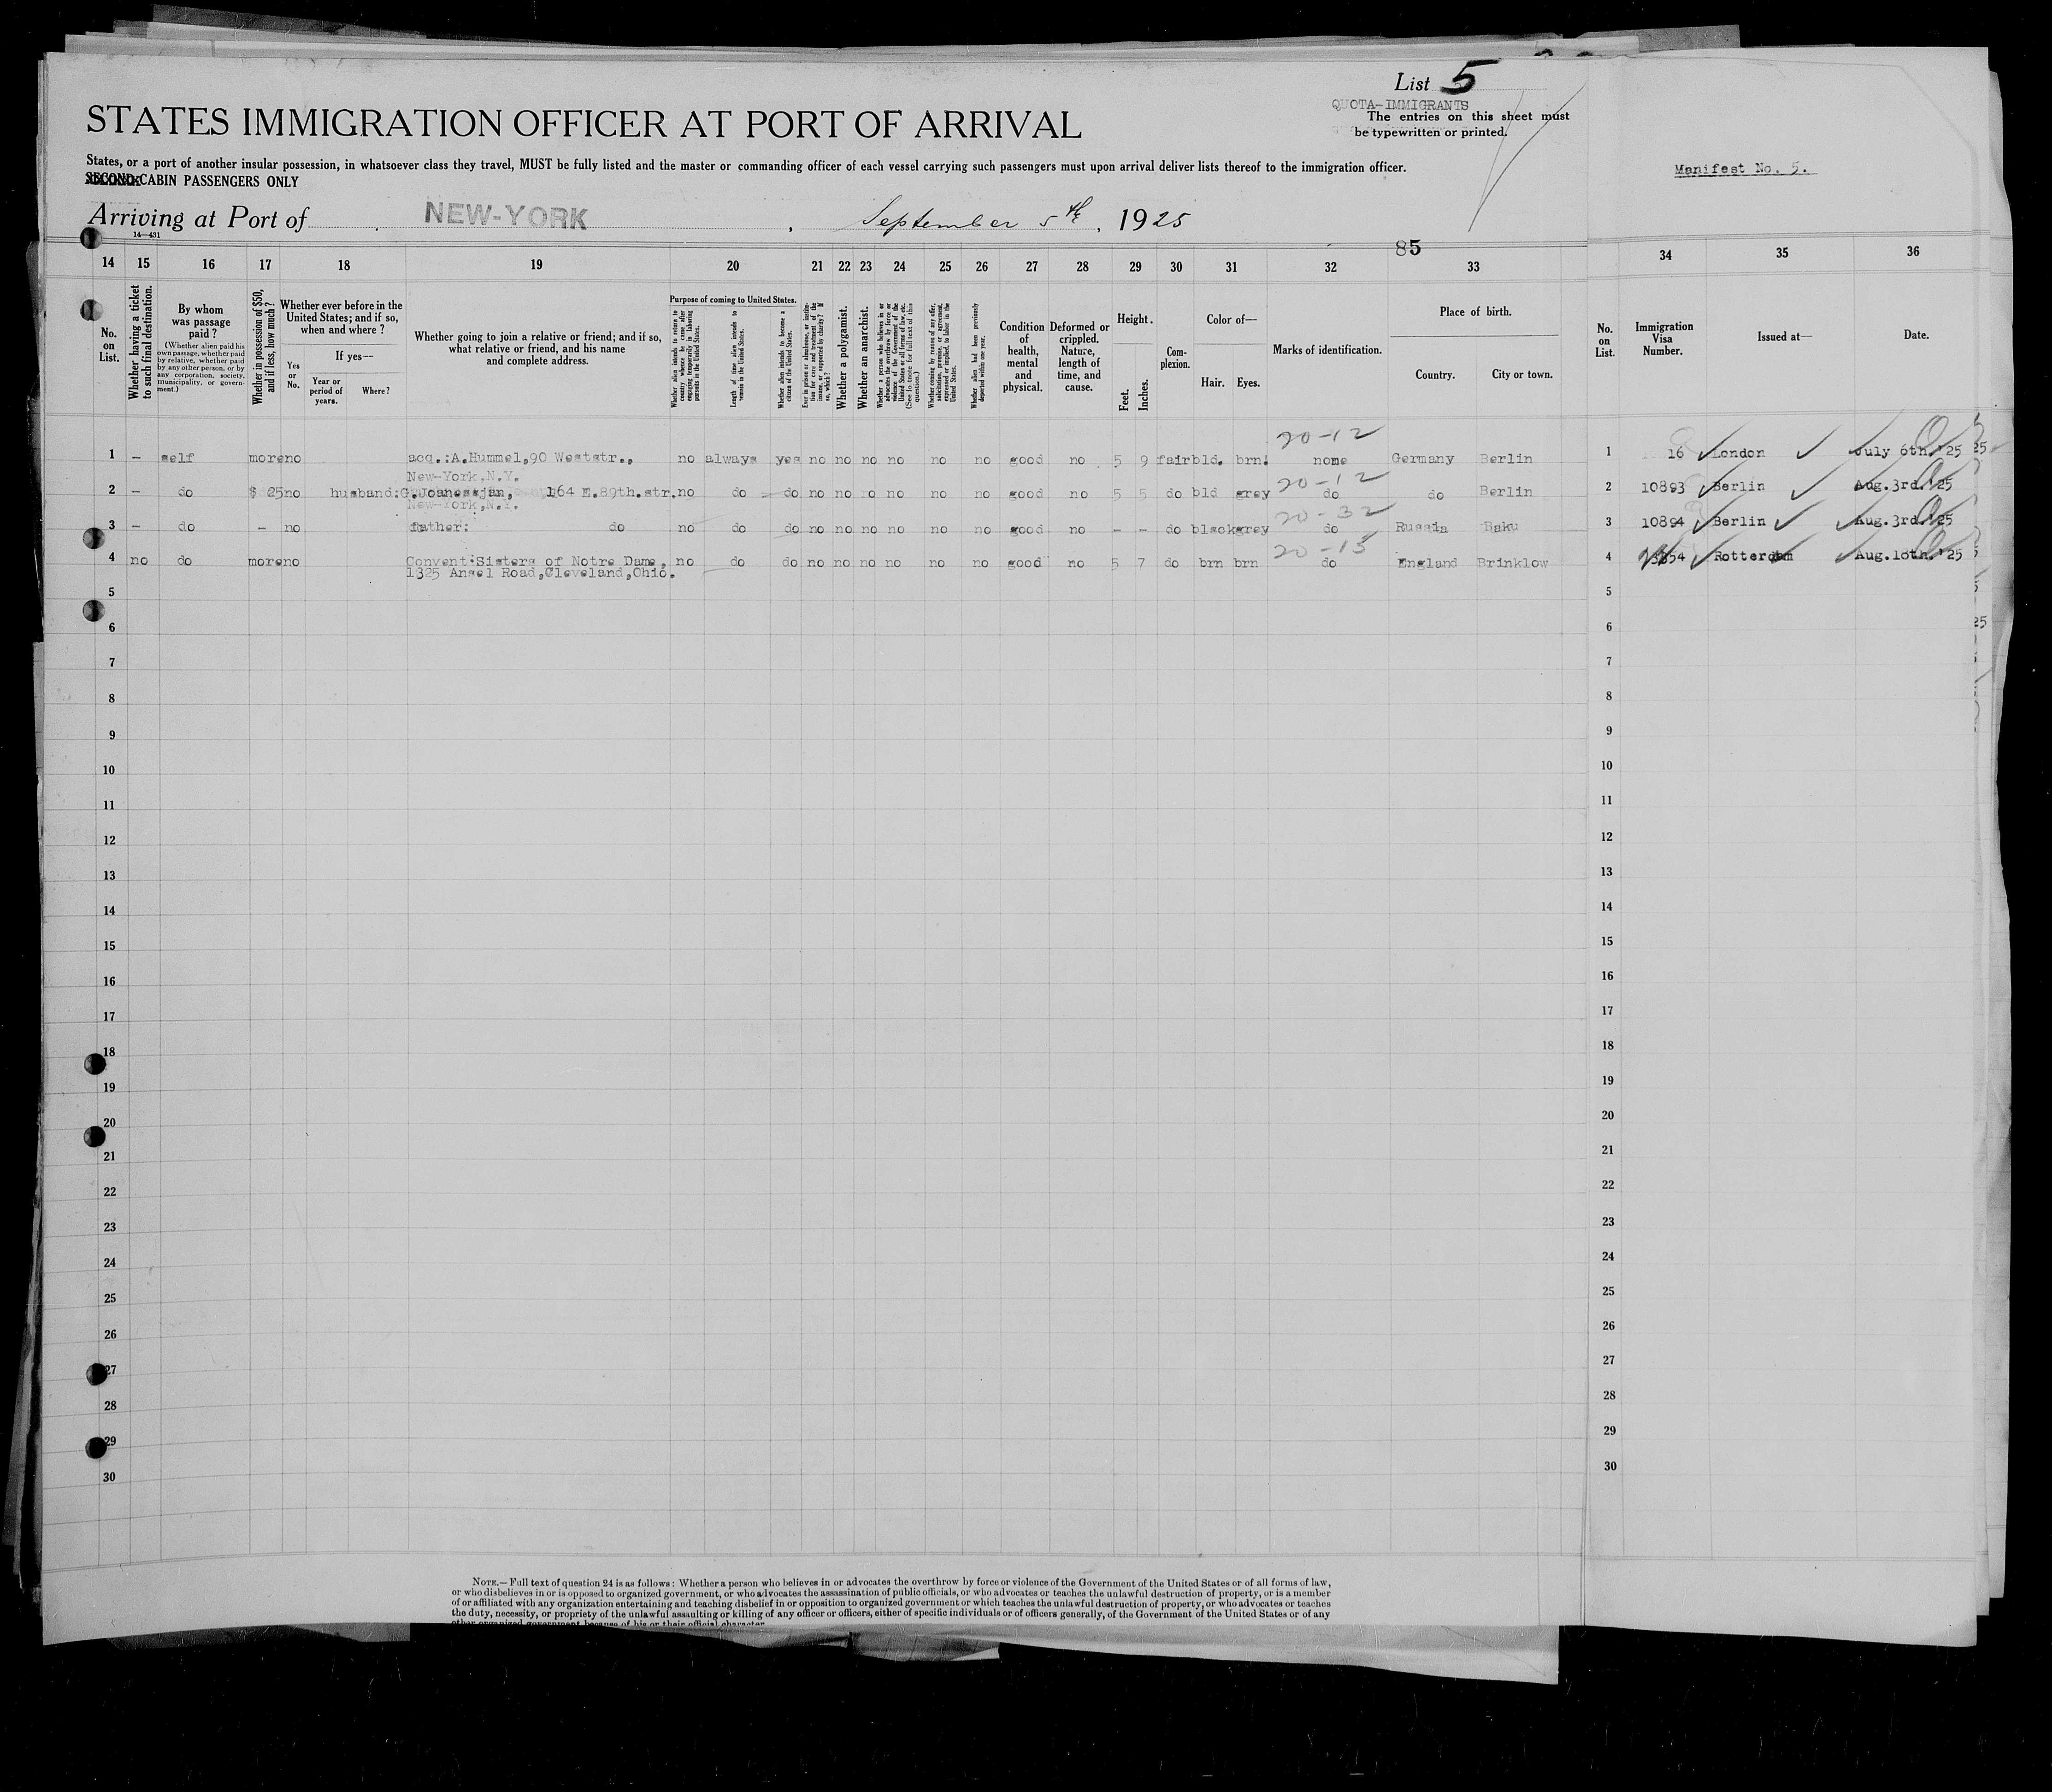 List 5
QUOTA-IMMIGRANTS
The entries on this sheet must
be typewritten or printed.
STATES IMMIGRATION OFFICER AT PORT OF ARRIVAL
States, or a port of another insular possession, in whatsoever class they travel, MUST be fully listed and the master or commanding officer of each vessel carrying such passengers must upon arrival deliver lists thereof to the immigration officer.
SECOND-CABIN PASSENGERS ONLY
Manifest No. 5.
Arriving at Port of NEW-YORK, September 5th, 1925
14—431
85
14 15 16 17 18 19 20 21 22 23 24 25 26 27 28 29 30 31 32 33 34 35 36
No. on List.
Whether having a ticket to such final destination.
By whom was passage paid?
(Whether alien paid his own passage, whether paid by relative, whether paid by any other person, or by any corporation, society, municipality, or government.)
Whether in possession of $50, and if less, how much?
Whether ever before in the United States; and if so, when and where?
Yes or No.
If yes—
Year or period of years.
Where?
Whether going to join a relative or friend; and if so, what relative or friend, and his name and complete address.
Purpose of coming to United States.
Whether alien intends to return to country whence he came after engaging temporarily in laboring pursuits in the United States.
Length of time alien intends to remain in the United States.
Whether alien intends to become a citizen of the United States.
Ever in prison or almshouse, or institution for care and treatment of the insane, or supported by charity? If so, which?
Whether a polygamist.
Whether an anarchist.
Whether a person who believes in or advocates the overthrow by force or violence of the Government of the United States or all forms of law, etc. (See footnote for full text of this question.)
Whether coming by reason of any offer, solicitation, promise, or agreement, expressed or implied, to labor in the United States.
Whether alien had been previously deported within one year.
Condition of health, mental and physical.
Deformed or crippled. Nature, length of time, and cause.
Height.
Feet. Inches.
Complexion.
Color of—
Hair. Eyes.
Marks of identification.
Place of birth.
Country. City or town.
No. on List.
Immigration Visa Number.
Issued at—
Date.
20-12
1 – self more no acq.:A.Hummel,90 Weststr., no always yes no no no no no no good no 5 9 fair bld. brn. none Germany Berlin 1 16 London July 6th.'25
New-York,N.Y.
20-12
2 – do $ 25 no husband:G.Joanessjan, 164 E.89th.str. no do do no no no no no no good no 5 5 do bld grey do do Berlin 2 10893 Berlin Aug.3rd.'25
New-York,N.Y.
20-32
3 – do – no father: do no do do no no no no no no good no – – do black grey do Russia Baku 3 10894 Berlin Aug.3rd.'25
20-15
4 no do more no Convent:Sisters of Notre Dame, no do do no no no no no no good no 5 7 do brn brn do England Brinklow 4 Rotterdam Aug.10th.'25
1325 Ansel Road,Cleveland,Ohio.
5 5
6 6
7 7
8 8
9 9
10 10
11 11
12 12
13 13
14 14
15 15
16 16
17 17
18 18
19 19
20 20
21 21
22 22
23 23
24 24
25 25
26 26
27 27
28 28
29 29
30 30
NOTE.—Full text of question 24 is as follows: Whether a person who believes in or advocates the overthrow by force or violence of the Government of the United States or of all forms of law,
or who disbelieves in or is opposed to organized government, or who advocates the assassination of public officials, or who advocates or teaches the unlawful destruction of property, or is a member
of or affiliated with any organization entertaining and teaching disbelief in or opposition to organized government or which teaches the unlawful destruction of property, or who advocates or teaches
the duty, necessity, or propriety of the unlawful assaulting or killing of any officer or officers, either of specific individuals or of officers generally, of the Government of the United States or of any
other organized government because of his or their official character.